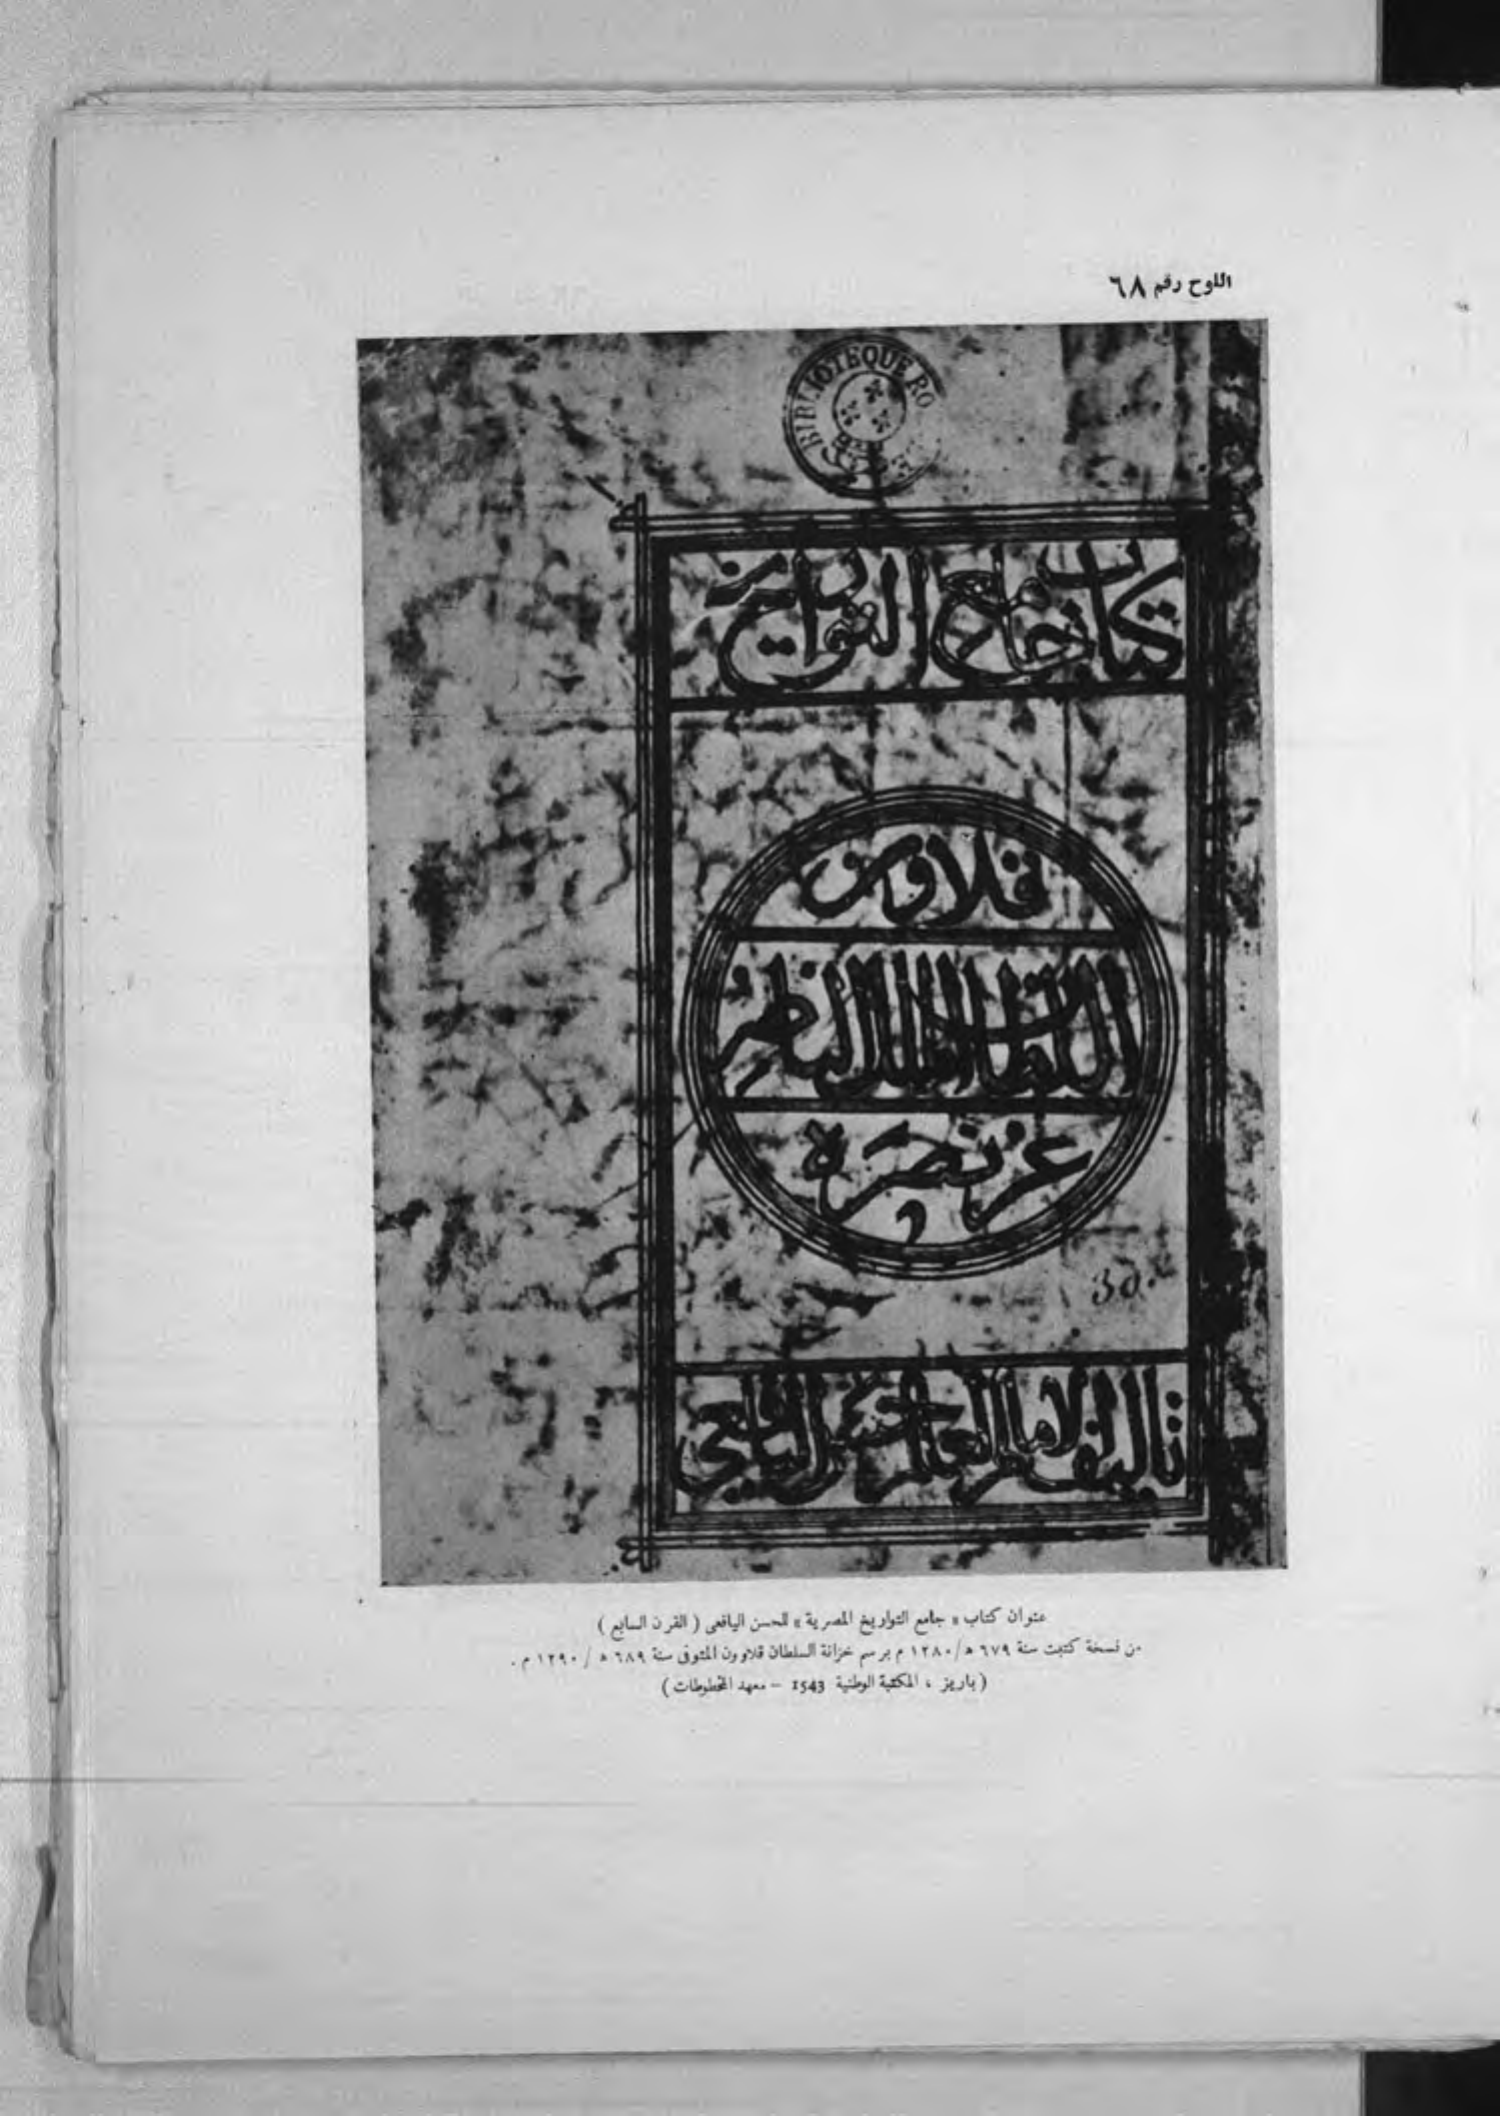 اللوح رقم ٦٨
BIBLIOTEQUE RO
كتاب جامع التواريخ
قلاوون
السلطان الملك
عز نصره
30.
تاليف الامام العالم اليافعي
عنوان كتاب « جامع التواريخ المصرية » للحسن اليافعي ( القرن السابع )
من نسخة كتبت سنة ٦٧٩ ه/١٢٨٠ م برسم خزانة السلطان قلاوون المتوفى سنة ٦٨٩ ه / ١٢٩٠ م .
( باريز ، المكتبة الوطنية 1543 – معهد المخطوطات )